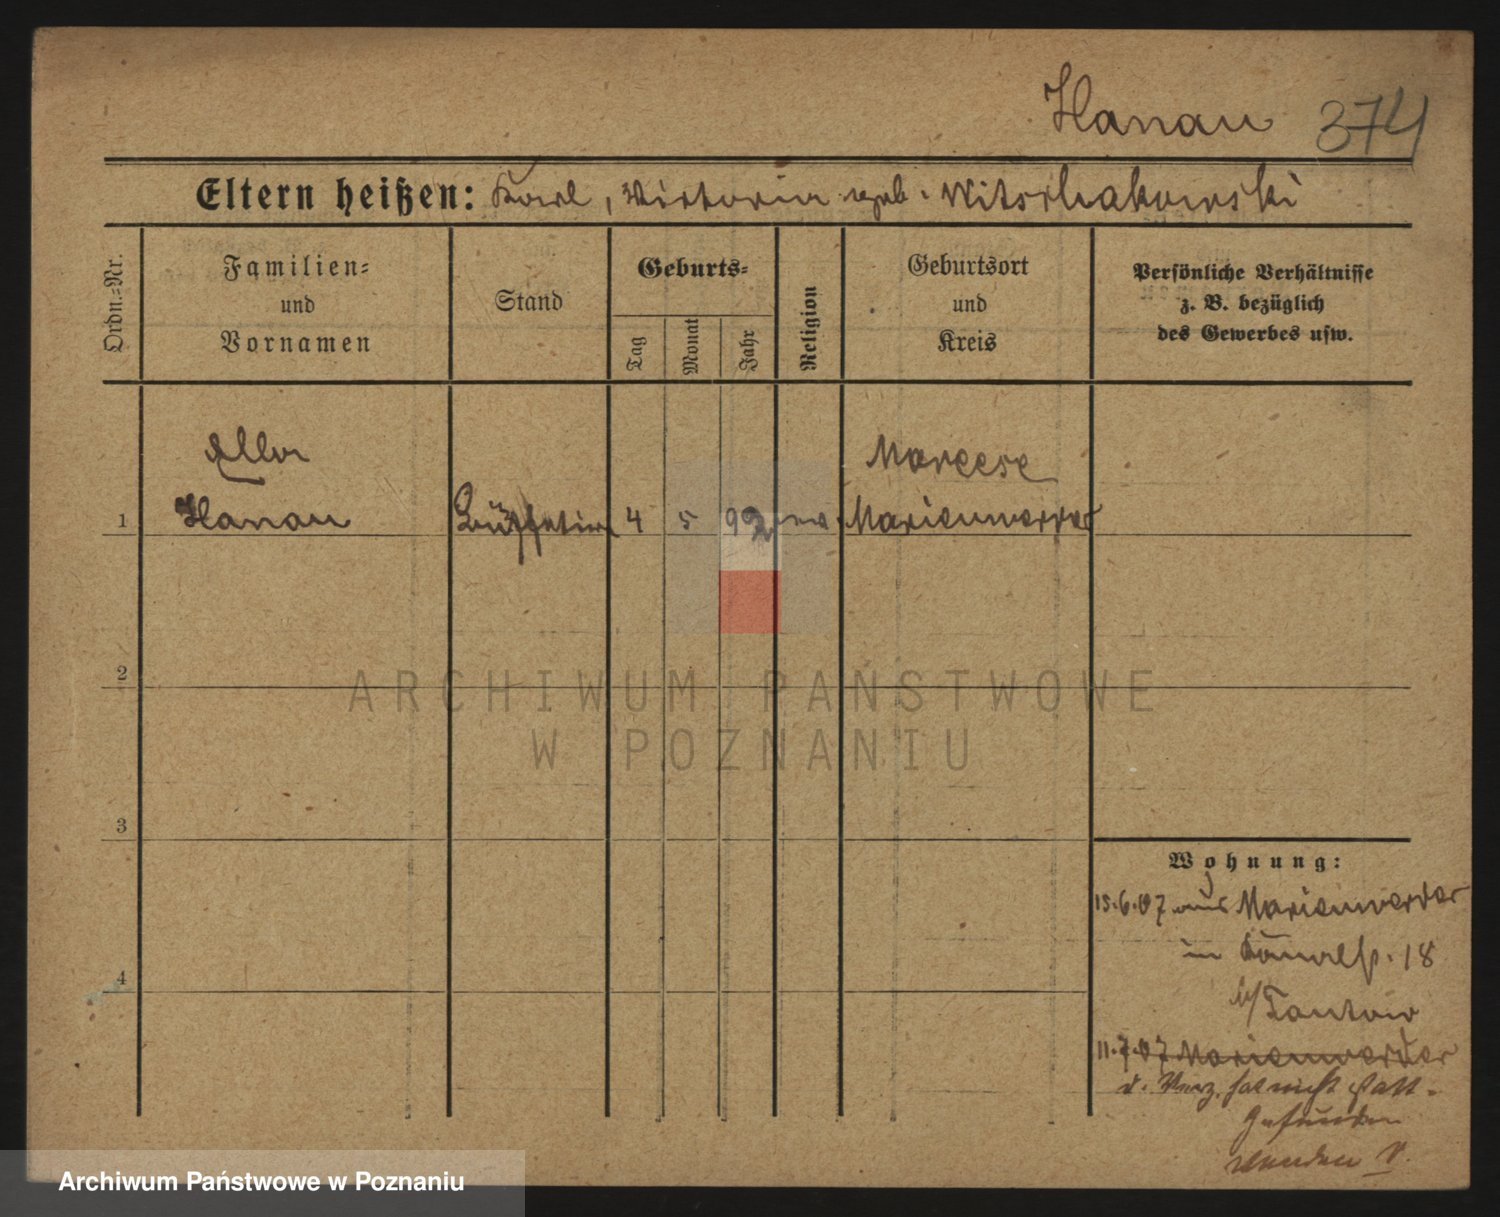 Hanau 374
Eltern heißen: Karl, Victoria geb. Witschakowski
Ordn.-Nr.
Familien-
und
Vornamen
Stand
Geburts-
Tag
Monat
Jahr
Religion
Geburtsort
und
Kreis
Persönliche Verhältnisse
z. B. bezüglich
des Gewerbes usw.
Ella
Mareese
1 Hanau 4 5 92 Marienwerder
2
3
4
Wohnung:
15.6.07 aus Marienwerder
in 18
b/
11.7.07 Marienwerder
d. hat nicht statt-
gefunden
ARCHIWUM PAŃSTWOWE
W POZNANIU
Archiwum Państwowe w Poznaniu